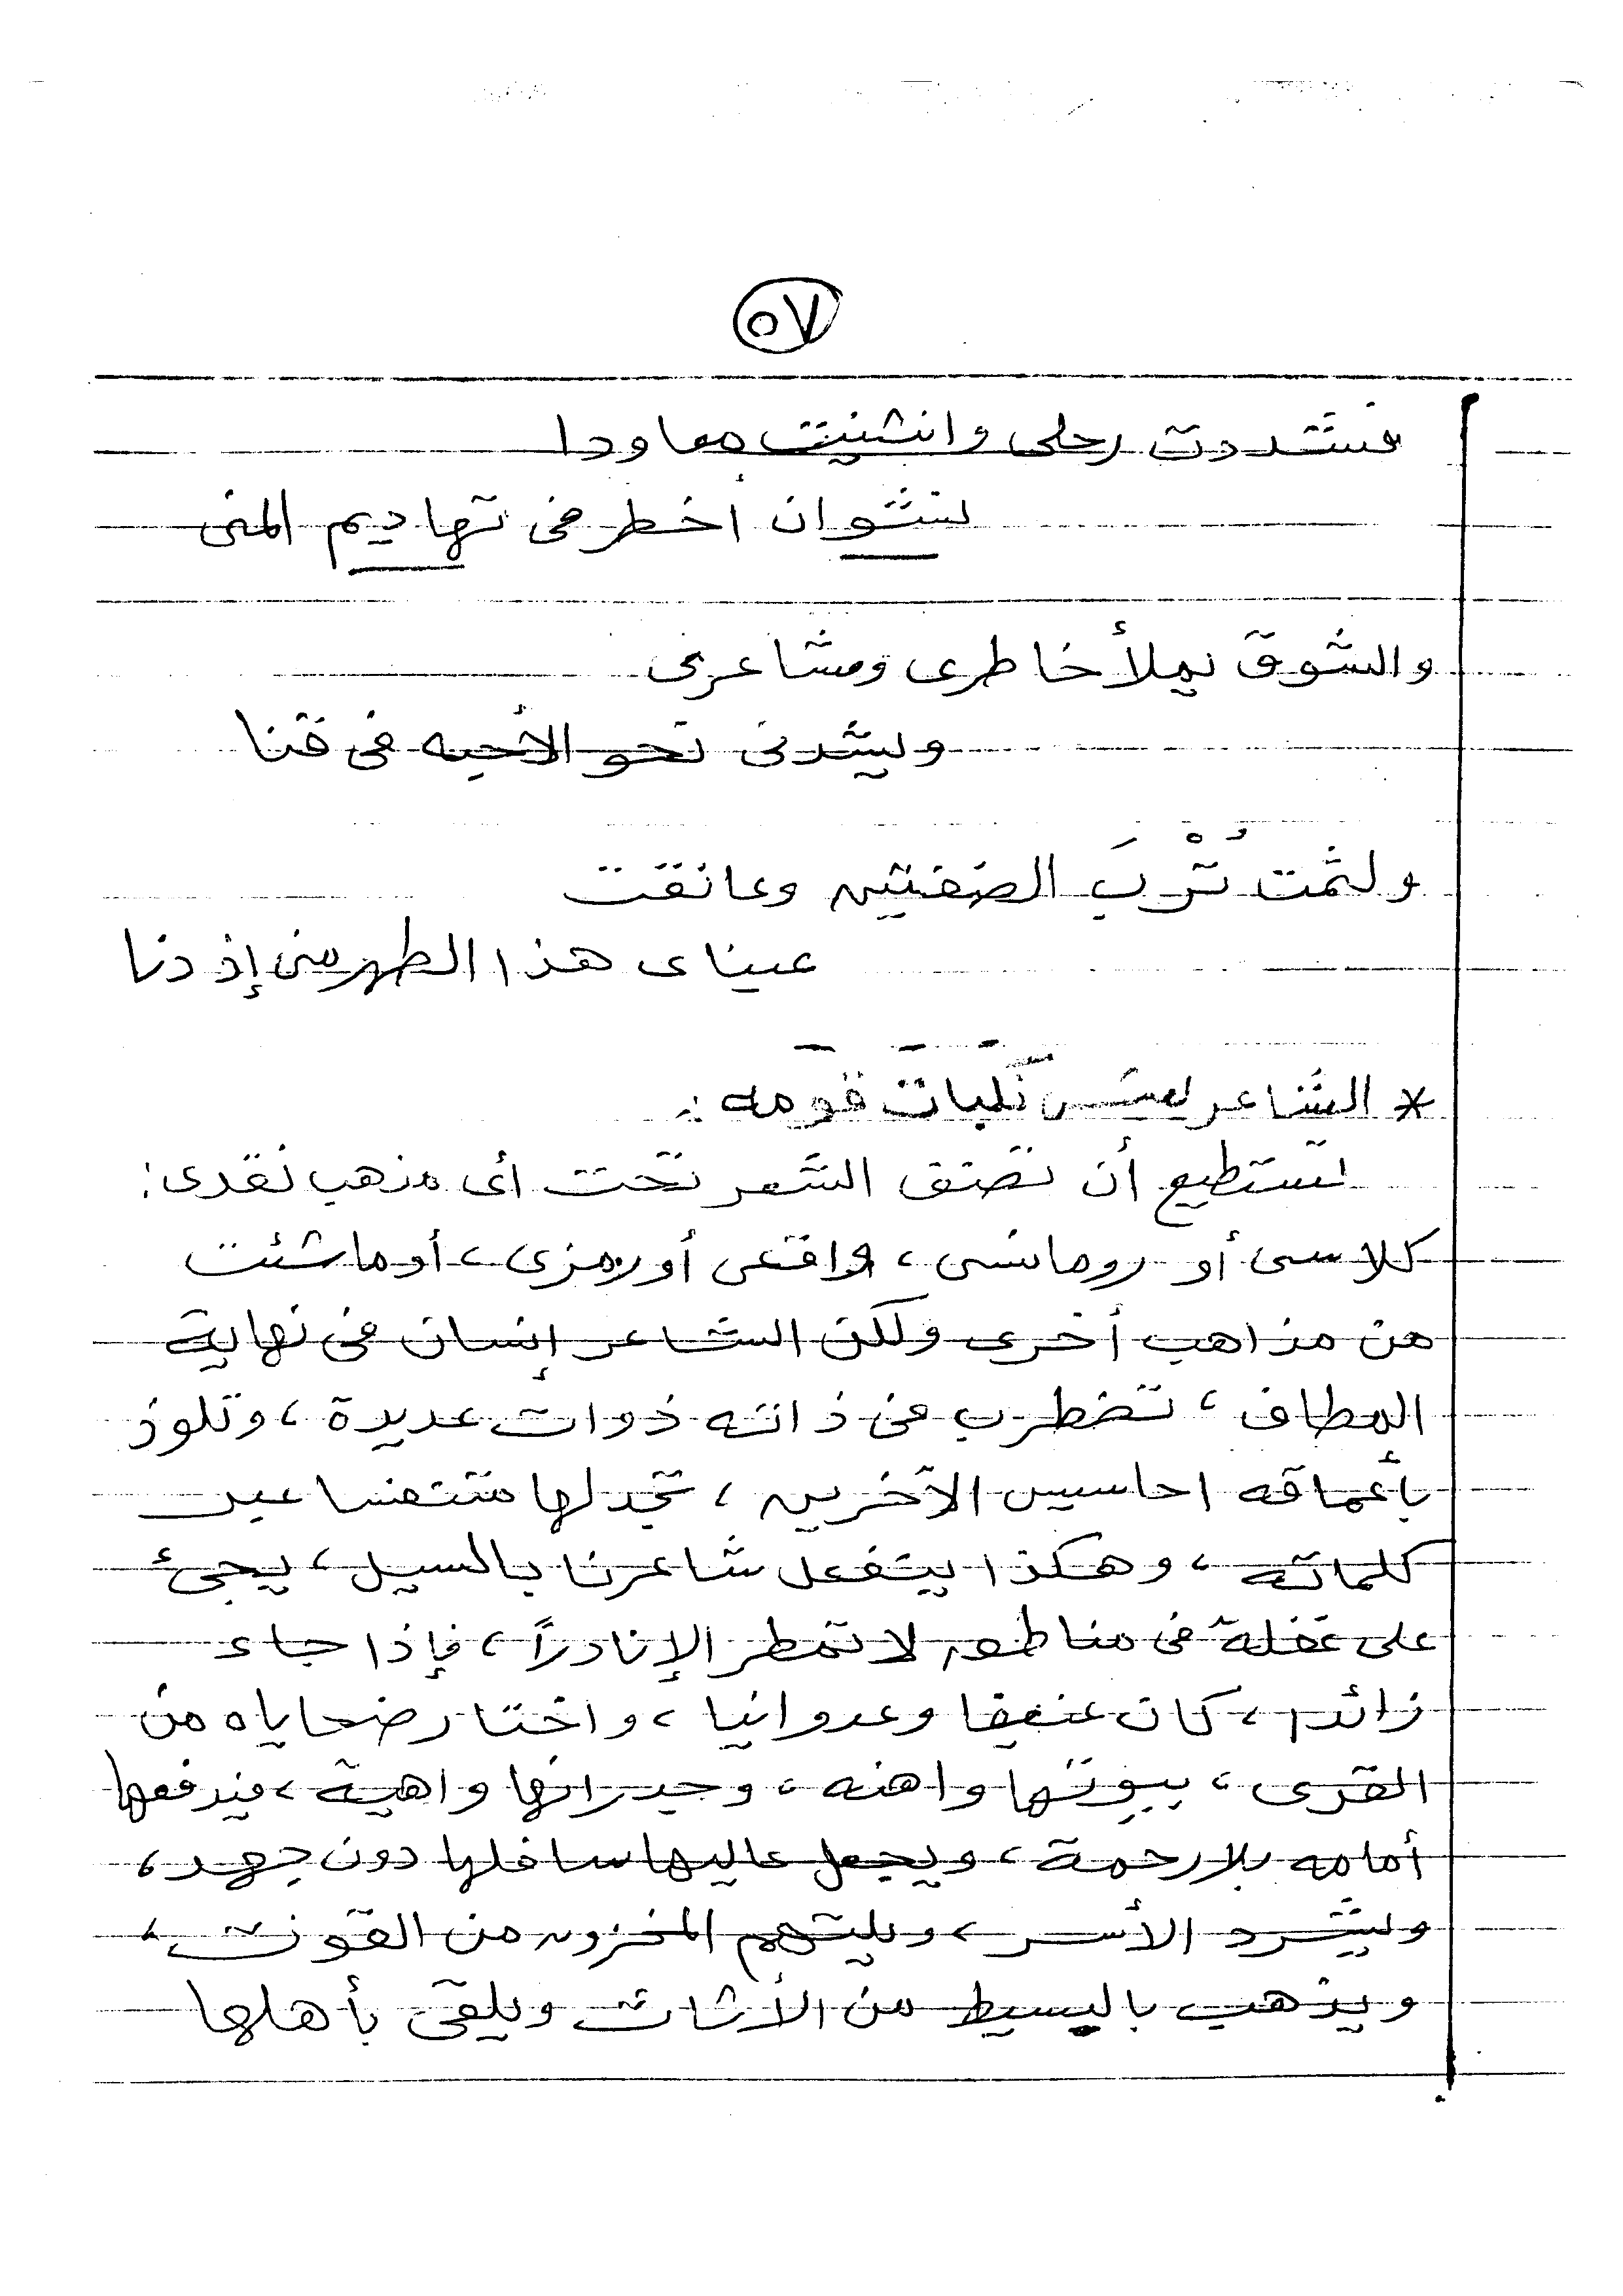 ٥٧
فشددت رحلى وانثنيت معاودا
نشوان أخطر فى تهاديم المنى
والشوق يملأ خاطرى ومشاعرى
ويشدنى نحو الأحبه فى قنا
ولثمت تُرْبَ الضفتين وعانقت
عيناى هذا الطهر منى إذ دنا
* الشاعر يعيش نكبات قومه :
نستطيع أن نصنف الشعر تحت أى مذهب نقدى :
كلاسى أو رومانسى ، واقعى أو رمزى ، أو ما شئت
من مذاهب أخرى ولكن الشاعر إنسان فى نهاية
المطاف ، تضطرب فى ذاته ذوات عديدة ، وتلوذ
بأعماقه احاسيس الآخرين ، تجد لها متنفسا عبر
كلماته ، وهكذا ينفعل شاعرنا بالسيل ، يجئ
على غفلة فى مناطق لا تمطر إلا نادراً ، فإذا جاء
زائدا ، كان عنيفا وعدوانيا ، واختار ضحاياه من
القرى ، بيوتها واهنه ، وجدرانها واهية ، فيدفعها
أمامه بلا رحمة ، ويجعل عاليها سافلها دون جهد ،
ويشرد الأسر ، ويلتهم المخزون من القوت ،
ويذهب باليسيط من الأثاث ويلقى بأهلها